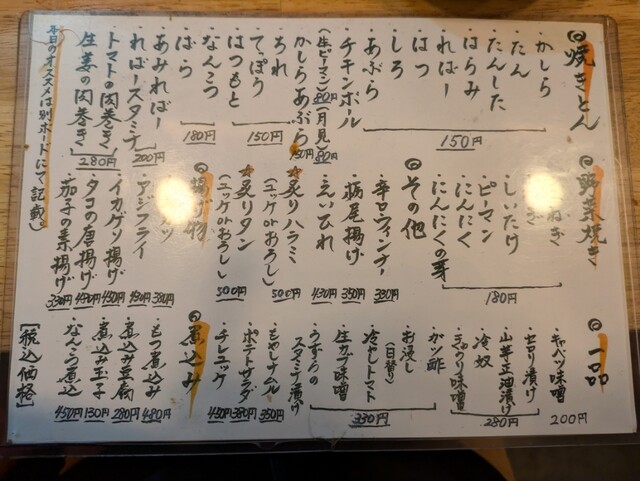 ◎焼きとん
・かしら
・たん
・たんした
・はらみ
・ればー
・はつ
・しろ
・あぶら
150円
・チチンボール
(生ピーマン)80円(月見)80円
・かしらあぶら
150円
・ちれ
・てっぽう
・はつもと
150円
・なんこつ
・はら
180円
・あみればー
・ればースタミナ
200円
・トマトの肉巻き
・生姜の肉巻き
280円
本日のオススメは別ボードにて記載
◎野菜焼き
ねぎ
・しいたけ
・ピーマン
・にんにく
・にんにくの芽
180円
◎その他
・辛口ウィンナー 330円
・栃尾揚げ 350円
・えいひれ 430円
★炙りハラミ
(ユッケorおろし) 500円
★炙りタン
(ユッケorおろし) 500円
◎揚げ物
・アジフライ 430円
・イカゲソ揚げ 430円
・タコの唐揚げ 480円
・茄子の素揚げ 330円
◎一品
・キャベツ味噌 200円
・セロリ漬け
・山芋正油漬け
・冷奴
・きゅうり味噌
280円
・ガツ酢
・お浸し
(日替)
・冷やしトマト
・生カブ味噌
・うずらの
スタミナ漬け
330円
・もやしナムル 350円
・ポテトサラダ 380円
・チレユッケ 430円
◎煮込み
・もつ煮込み 480円
・煮込み豆腐 280円
・煮込み玉子 130円
・なんこつ煮込 450円
[税込価格]